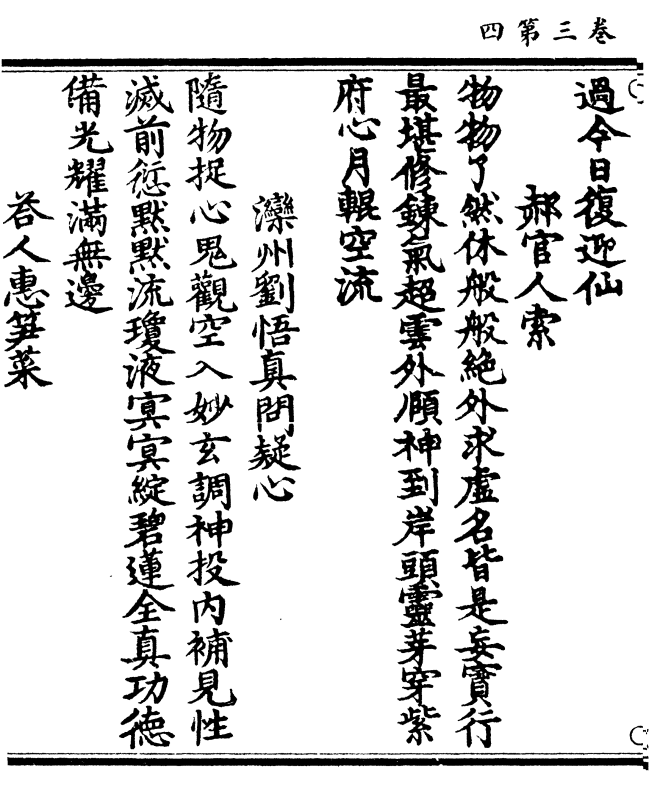 卷三第四
過今日復迎仙
郝官人索
物物了然休般般絶外求虛名皆是妄寳行
最堪修鍊氣超雲外頤神到岸頭靈芽穿紫
府心月輥空流
灤州劉悟真問疑心
隨物捉心鬼觀空入妙玄調神投内補見性
滅前愆默默流瓊液㝠㝠綻碧蓮全真功德
備光耀滿無邊
荅人惠笋菜